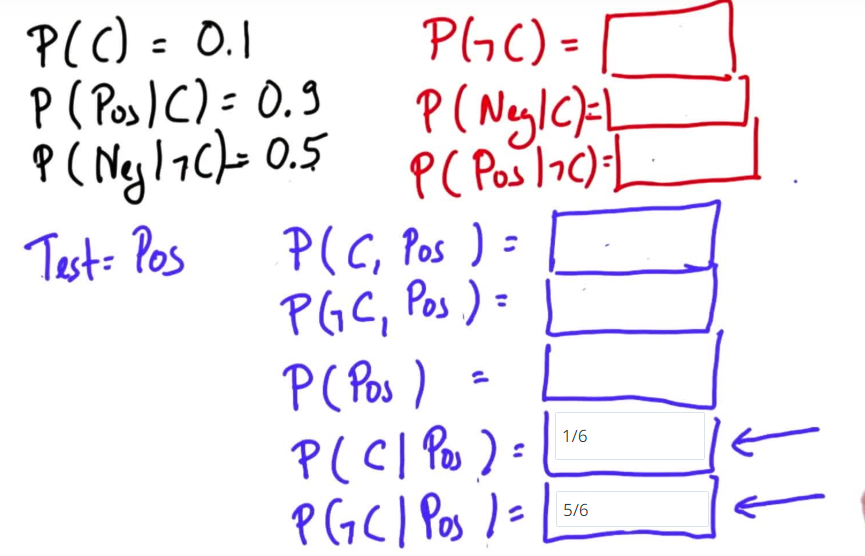 P(C) = 0.1
P(¬C) =
P(Pos|C) = 0.9
P(Neg|C) =
P(Neg|¬C) = 0.5
P(Pos|¬C) =
Test = Pos
P(C, Pos) =
P(¬C, Pos) =
P(Pos) =
P(C|Pos) = 1/6
P(¬C|Pos) = 5/6